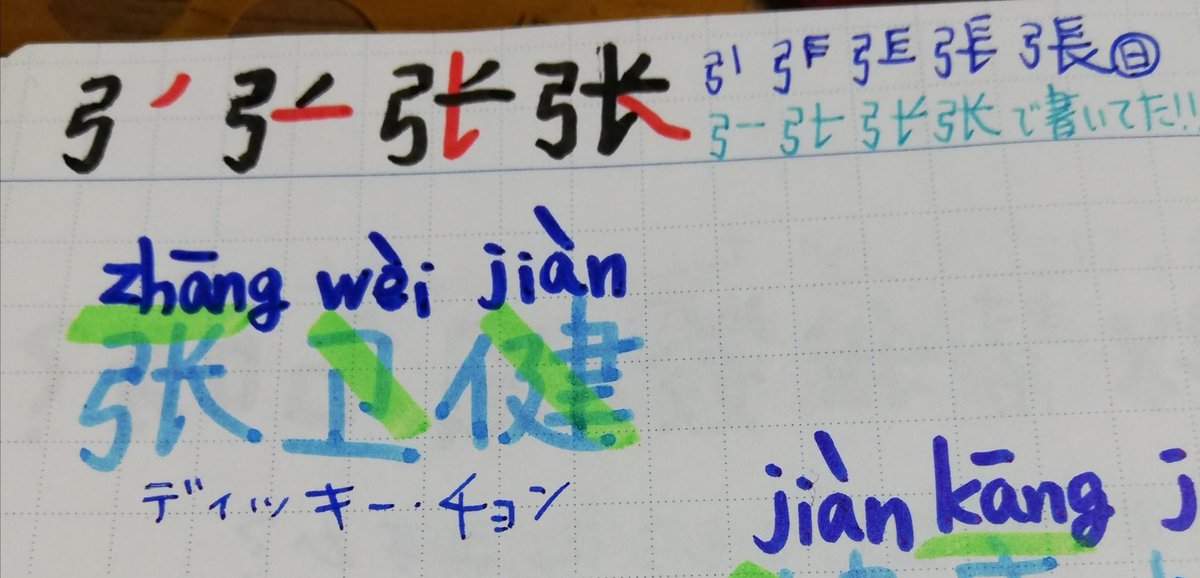 张 張 張 ㊐
张 で書いてた!!
zhāng wèi jiàn
张 卫 健
ディッキー・チョン
jiàn kāng j